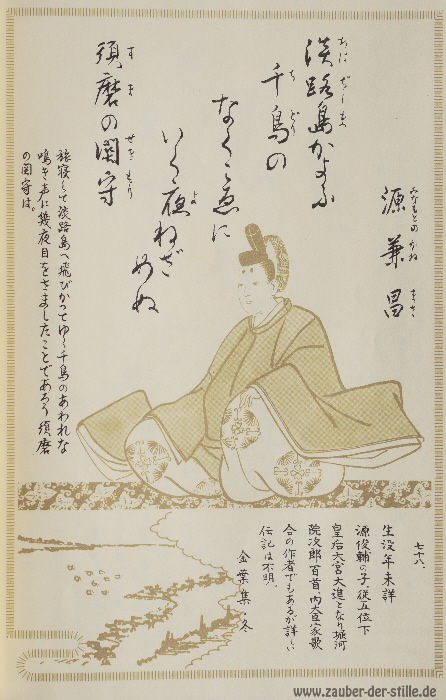 淡路島かよふ
千鳥の
なくこゑに
いく夜ねざ
めぬ
須磨の関守
源兼昌
みなもとの かね まさ
旅寝して淡路島へ飛びかってゆく千鳥のあわれな
鳴き声に幾夜目をさましたことであろう須磨
の関守は。
七十八、
生没年未詳
源俊輔の子、従五位下
皇后大宮大進となり堀河
院次郎百首、内大臣家歌
合の作者でもあるが詳しい
伝記は不明。
金葉集・冬
www.zauber-der-stille.de